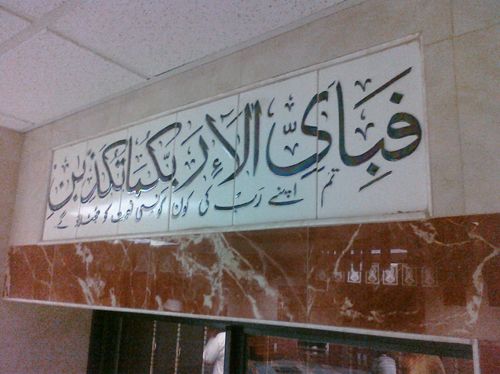 فَبِاَیِّ اٰلَآءِ رَبِّکُمَا تُکَذِّبٰنِ
تم اپنے رب کی کون کونسی نعمت کو جھٹلاؤ گے